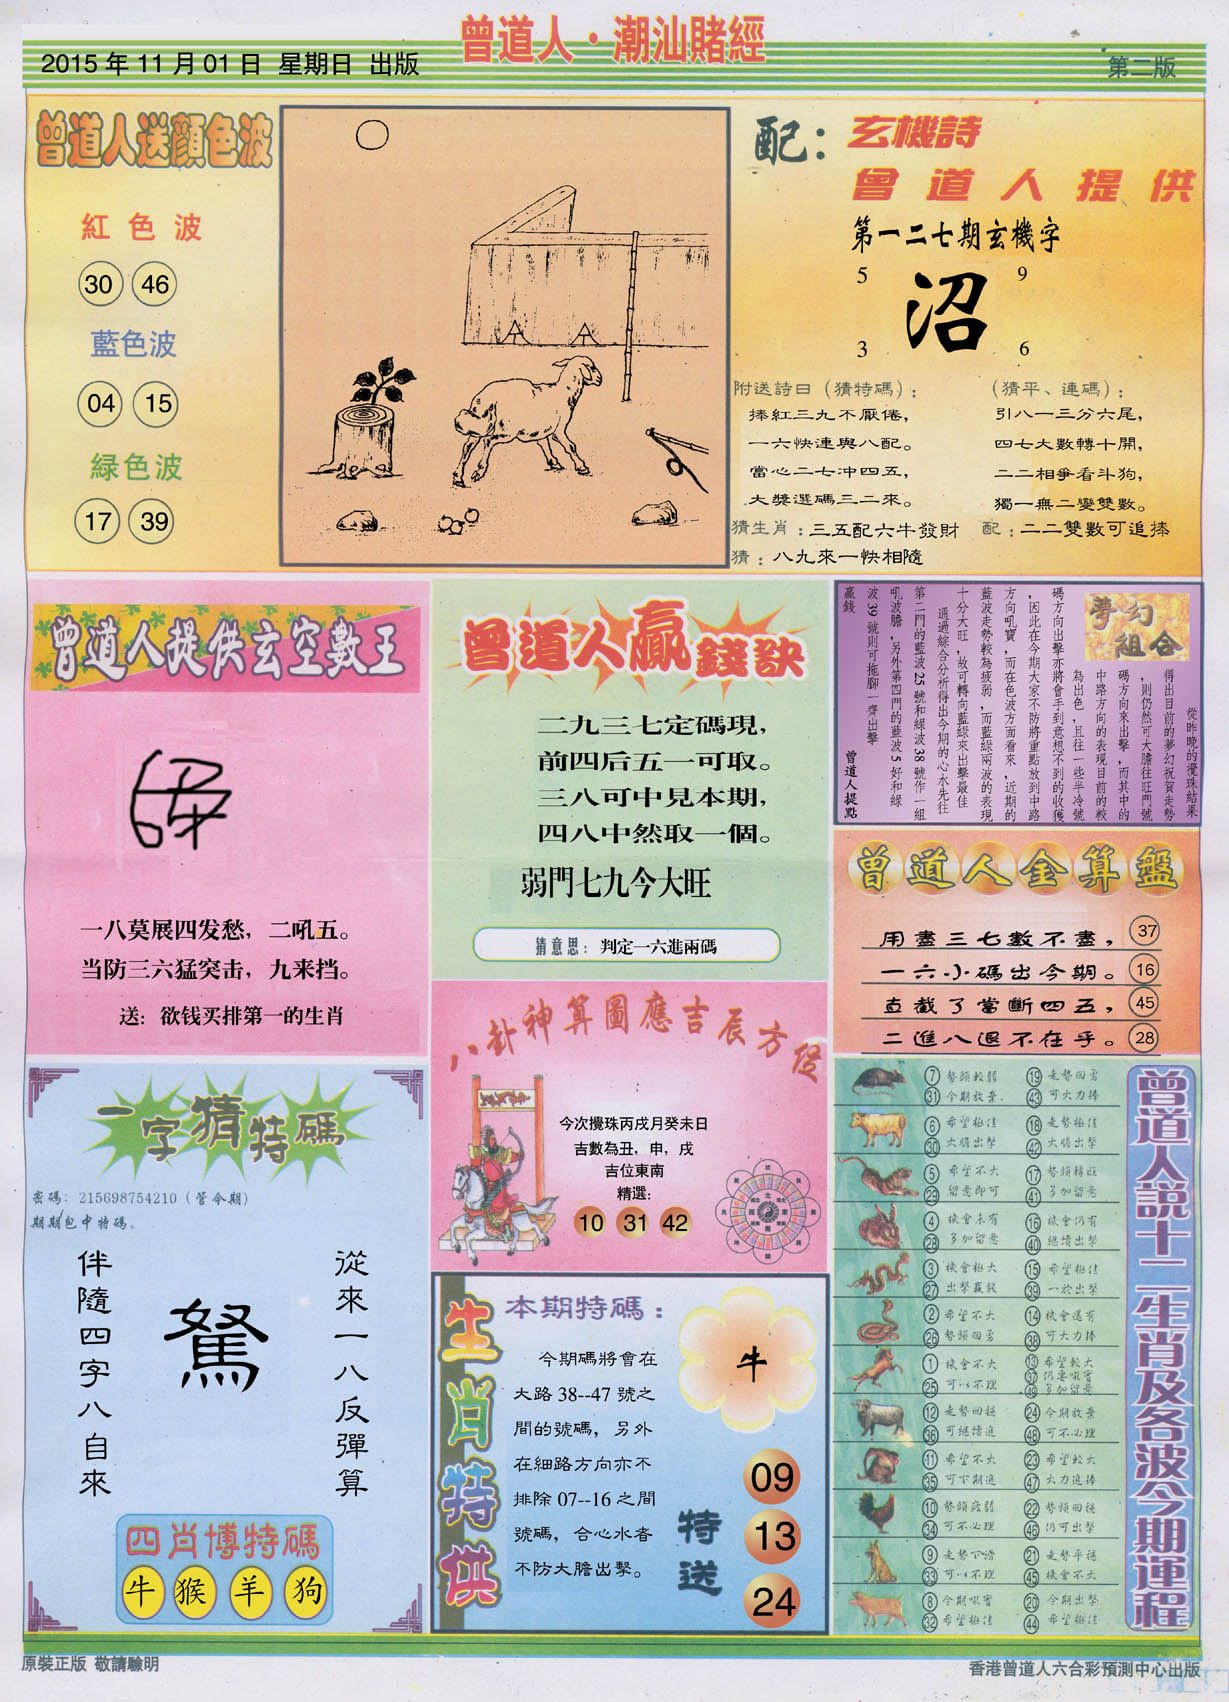 曾道人·潮汕賭經
2015年11月01日 星期日 出版
第二版
曾道人送顔色波
紅色波
30 46
藍色波
04 15
緑色波
17 39
配：
玄機詩
曾道人提供
第一二七期玄機字
5 9
沼
3 6
附送詩日（猜特碼）：
捧紅三九不厭倦，
一六快連與八配。
當心二七冲四五，
大獎選碼三二來。
（猜平、連碼）：
引八一三分六尾，
四七大數轉十開，
二二相爭看斗狗，
獨一無二變雙數。
猜生肖：三五配六牛發財
配：二二雙數可追捧
猜：八九來一快相隨
曾道人提供玄空數王
一八莫展四发愁，二吼五。
当防三六猛突击，九来挡。
送：欲钱买排第一的生肖
曾道人贏錢訣
二九三七定碼現，
前四后五一可取。
三八可中見本期，
四八中然取一個。
弱門七九今大旺
猜意思：判定一六進兩碼
夢幻組合
從昨晚的攪珠結果
得出目前的夢幻祝賀走勢
，則仍然可大膽往旺門號
碼方向來出擊，而其中的
中路方向的表現目前的較
為出色，且往一些半冷號
碼方向出擊亦將會手到意想不到的收獲
，因此在今期大家不防將重點放到中路
方向吼寶，而在色波方面看來，近期的
藍波走勢較為疲弱，而藍綠兩波的表現
十分大旺，故可轉向藍綠來出擊最佳
通過綜合分析得出今期的心水先往
第二門的藍波25號和綠波38號作一組
吼波膽，另外第四門的藍波5好和綠
波39號則可拖腳一齊出擊
贏錢
曾道人提點
曾道人金算盤
用盡三七數不盡， 37
一六小碼出今期。 16
直截了當斷四五， 45
二進八退不在乎。 28
八卦神算圖應吉辰方位
今次攪珠丙戌月癸未日
吉數為丑，申，戌
吉位東南
精選：
10 31 42
一字猜特碼
密碼：215698754210（管今期）
期期包中特碼。
從來一八反彈算
駑
伴隨四字八自來
四肖博特碼
牛 猴 羊 狗
生肖特供
本期特碼：
今期碼將會在
大路38--47號之
間的號碼，另外
在細路方向亦不
排除07--16之間
號碼，合心水者
不防大膽出擊。
牛
特送
09
13
24
曾道人説十二生肖及各波今期運程
7 勢頭較弱 19 走勢回勇
31 今期放棄. 43 可大力捧
6 希望極佳 18 走勢極佳
30 大膽出擊 42 大膽出擊
5 希望不大 17 勢頭轉旺
29 留意即可 41 多加留意
4 機會未有 16 機會仍有
28 多加留意 40 繼續出擊
3 機會極大 15 希望極佳
27 出擊贏錢 39 一於出擊
2 希望不大 14 機會還有
26 勢頭回勇 38 可大力捧
1 機會不大 13 希望較大
25 可以不理 37 仍要吼實
49 多加留意
12 走勢回穩 24 今期放棄
36 可繼續追 48 可不必理
11 希望不大 23 希望較大
35 可下期追 47 大力追捧
10 勢頭疲弱 22 勢頭回穩
34 可不必理 46 仍可出擊
9 走勢下滑 21 走勢平穩
33 可以不理 45 機會不大
8 今期吼實 20 今期出擊
32 希望極佳 44 希望極佳
原裝正版 敬請驗明
香港曾道人六合彩預測中心出版